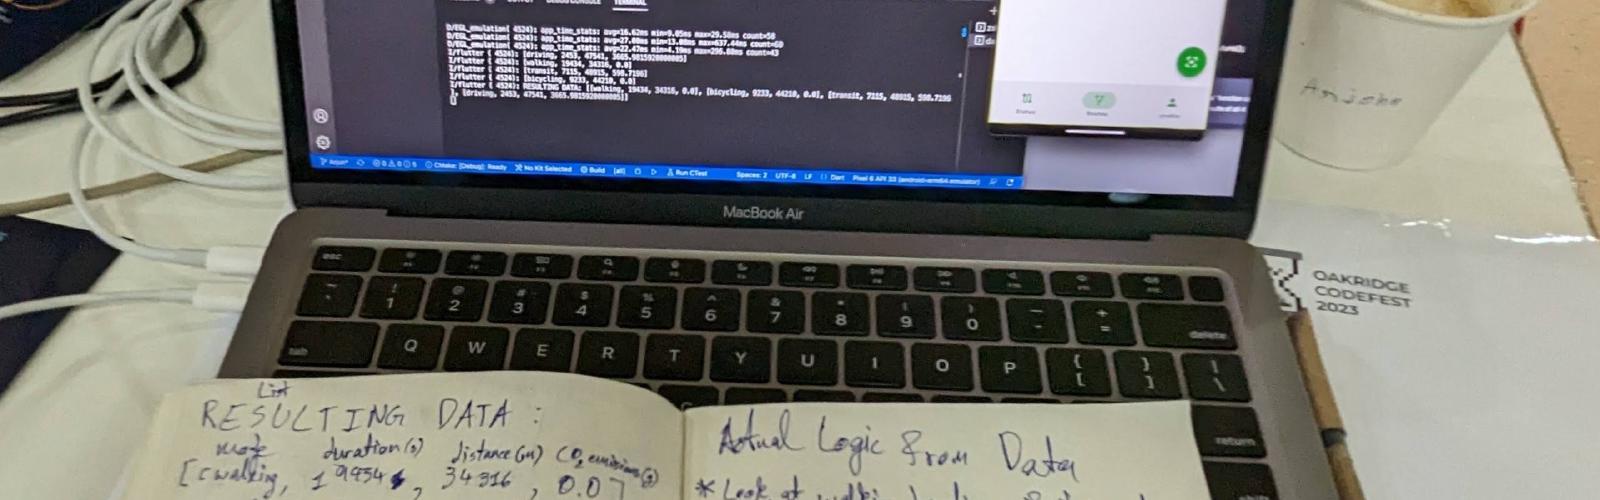 TERMINAL
D/EGL_emulation( 4524): app_time_stats: avg=16.62ms min=9.05ms max=29.58ms count=58
D/EGL_emulation( 4524): app_time_stats: avg=27.08ms min=13.08ms max=637.44ms count=60
D/EGL_emulation( 4524): app_time_stats: avg=22.47ms min=4.19ms max=296.88ms count=43
I/flutter ( 4524): [driving, 2453, 47541, 3665.9815920000005]
I/flutter ( 4524): [walking, 19434, 34316, 0.0]
I/flutter ( 4524): [transit, 7115, 48915, 598.7196]
I/flutter ( 4524): [bicycling, 9233, 44210, 0.0]
I/flutter ( 4524): RESULTING DATA: [[walking, 19434, 34316, 0.0], [bicycling, 9233, 44210, 0.0], [transit, 7115, 48915, 598.7196
], [driving, 2453, 47541, 3665.9815920000005]]
Arjun* 0 0 5 CMake: [Debug]: Ready No Kit Selected Build [all] Run CTest Spaces: 2 UTF-8 LF {} Dart Pixel 6 API 33 (android-arm64 emulator)
MacBook Air
OAKRIDGE
CODEFEST
2023
esc
~ ` ! 1 @ 2 # 3 $ 4 % 5 ^ 6 & 7 * 8 ( 9 ) 0 — - + = delete
tab Q W E R T Y U I O P { [ } ] | \
return
shift
List
RESULTING DATA :
mode duration(s) distance(m) CO2 emissions(g)
[[walking, 19434, 34316, 0.0]
Actual Logic from Data
* Look at